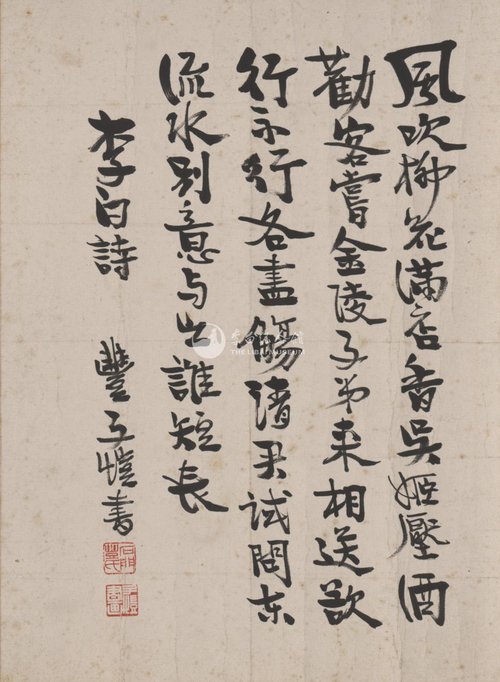 風吹柳花滿店香吳姬壓酒
勸客嘗金陵子弟來相送欲
行不行各盡觴請君試問東
流水別意与之誰短長
李白詩 豐子愷書
石門豐氏
THE MUSEUM